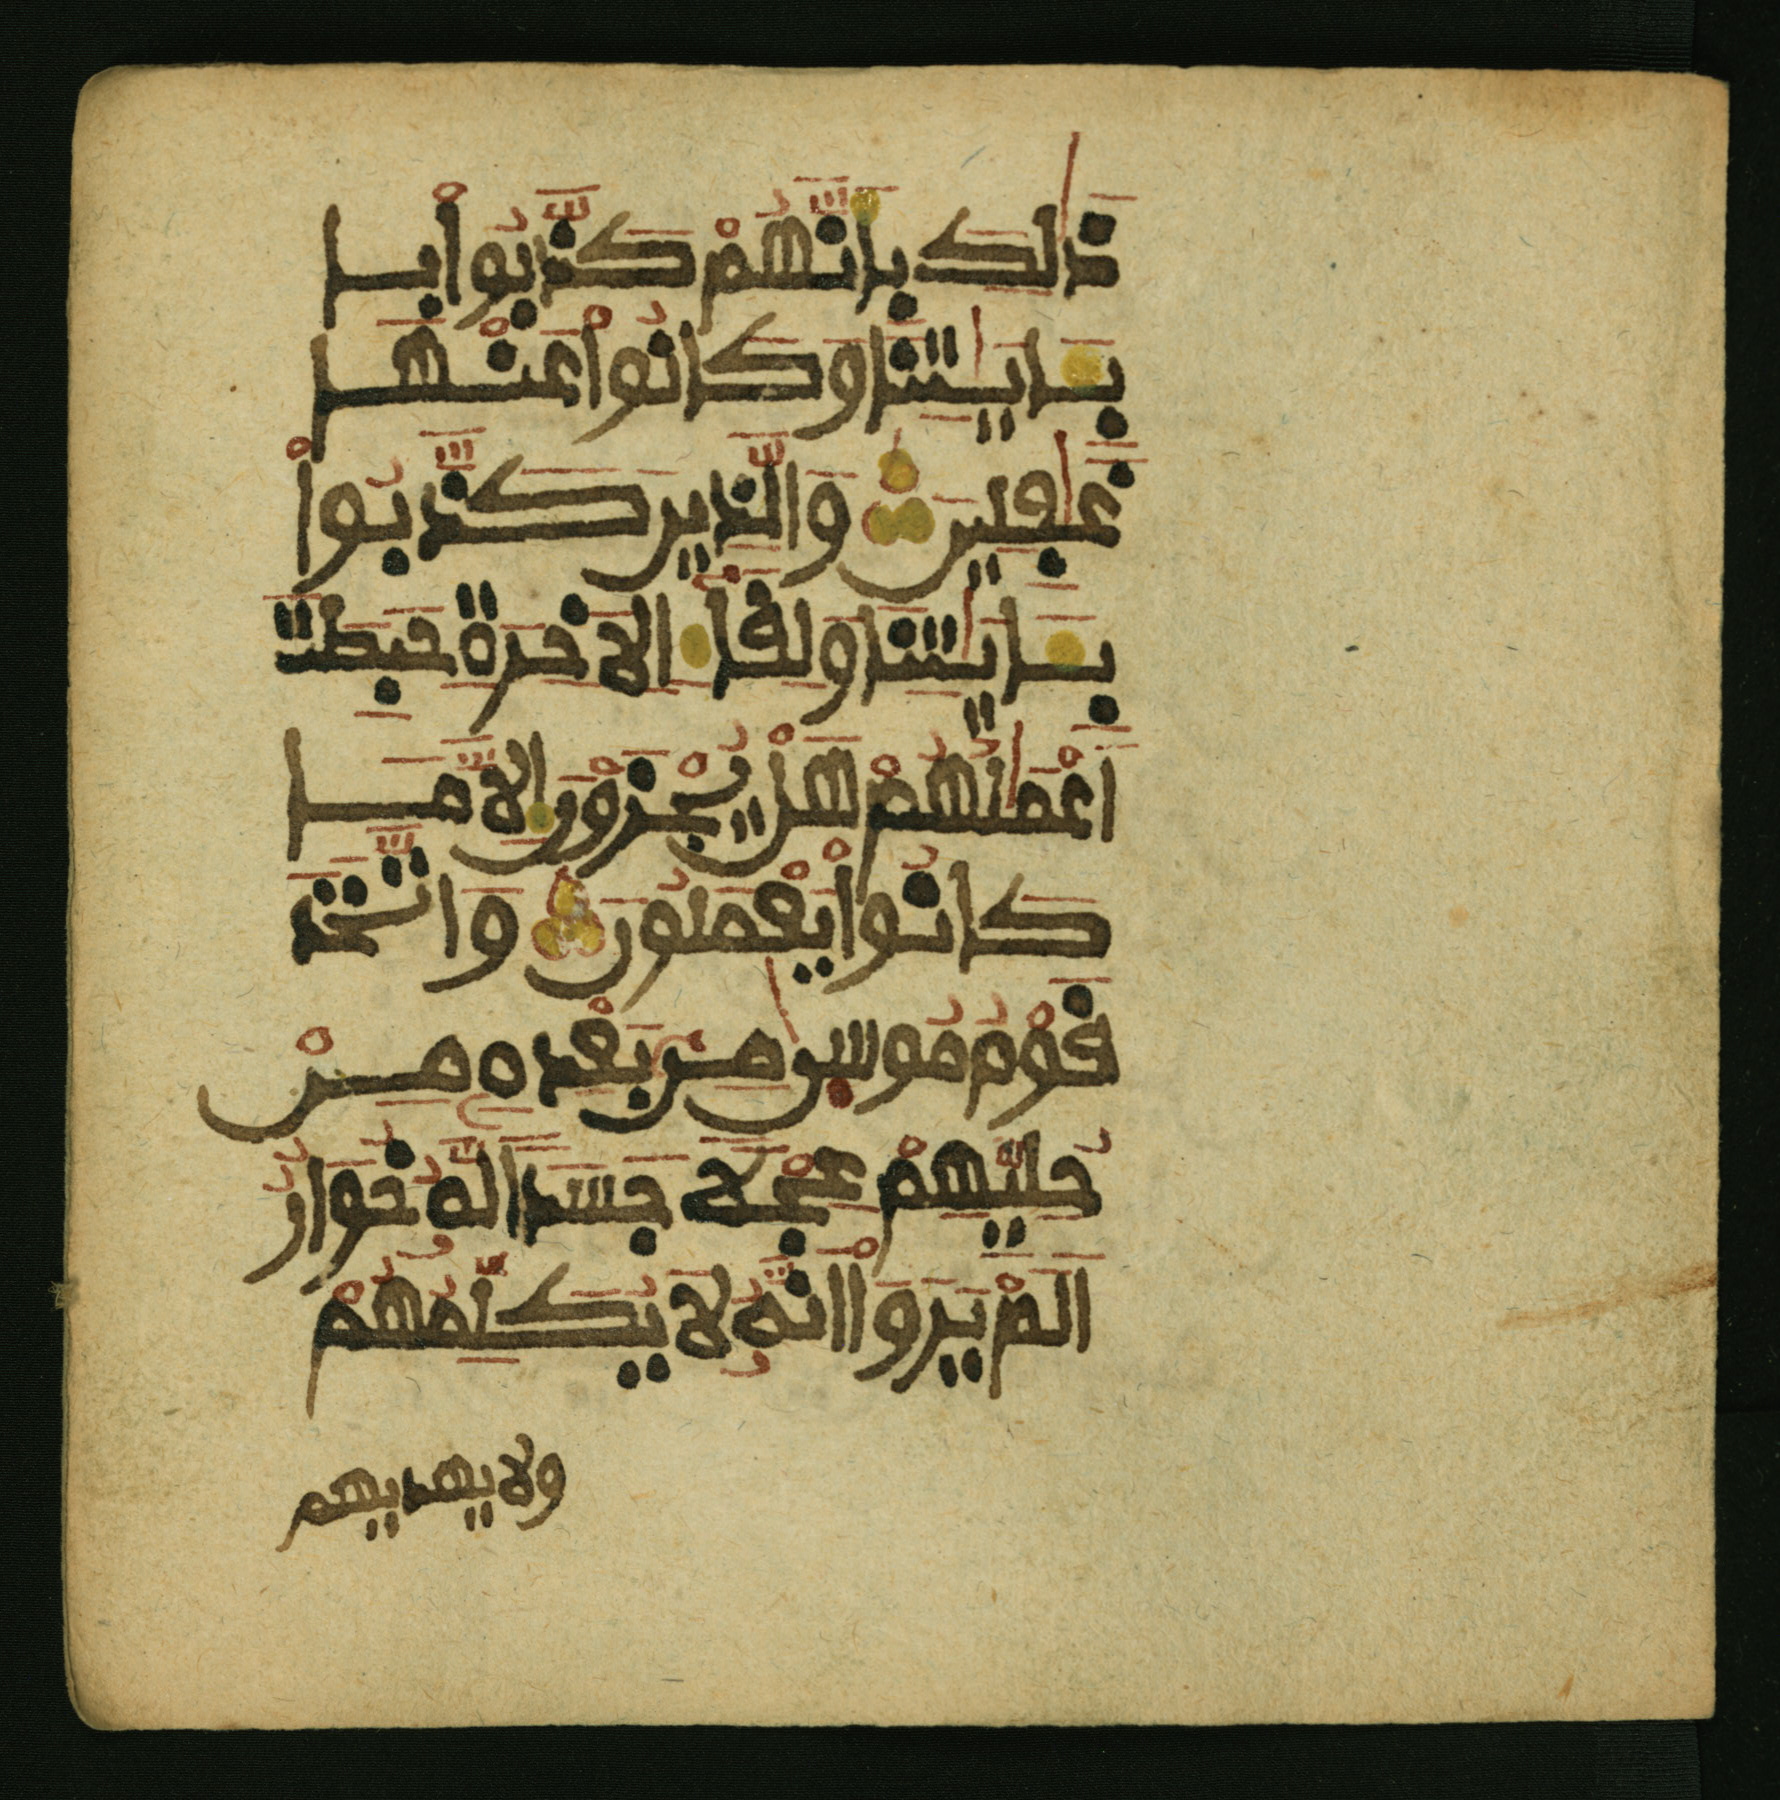 ذَٰلِكَ بِأَنَّهُمْ كَذَّبُواْ بِـا
بِـَٔايَٰتِنَا وَكَانُواْ عَنْهَا
غَٰفِلِينَ وَالَّذِينَ كَذَّبُواْ
بِـَٔايَٰتِنَا وَلِقَآءِ الْأَخِرَةِ حَبِطَتَ
أَعْمَٰلُهُمْ هَلْ يُجْزَوْنَ إِلَّا مَا
كَانُواْ يَعْمَلُونَ وَاتَّخَذَ
قَوْمُ مُوسَىٰ مِنۢ بَعْدِهِ مِنْ
حُلِيِّهِمْ عِجْلًا جَسَدًا لَّهُ خُوَارٌ
أَلَمْ يَرَوْاْ أَنَّهُ لَا يُكَلِّمُهُمْ
ولا يهديهم